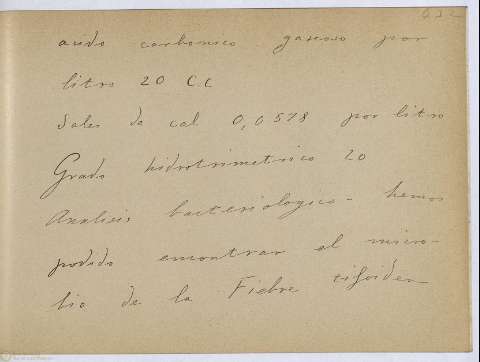 acido carbonico gaseoso por
litro 20 CC
Sales de cal 0,0578 por litro
Grado hidrotrimetrico 20
Analisis bacteriologico - hemos
podido encontrar el micro-
bio de la Fiebre tifoidea